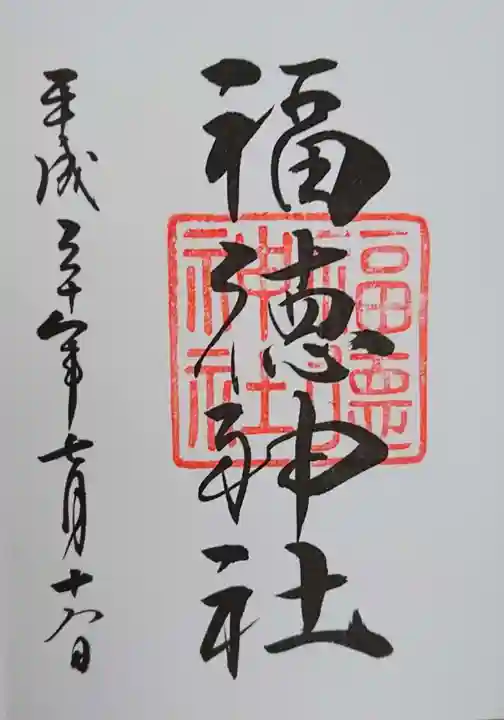 福徳神社
福徳神社
平成三十年七月十八日